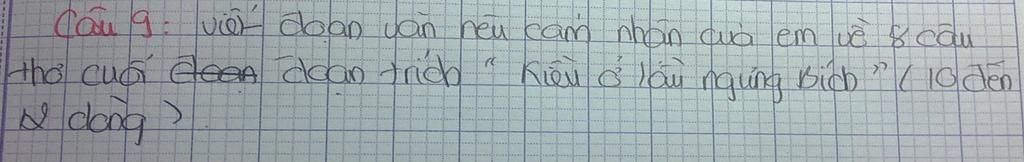 Câu 9: viết đoạn văn nêu cảm nhận của em về 8 câu
thơ cuối đoạn trích "Kiều ở lầu ngưng bích" (10 đến
12 dòng)